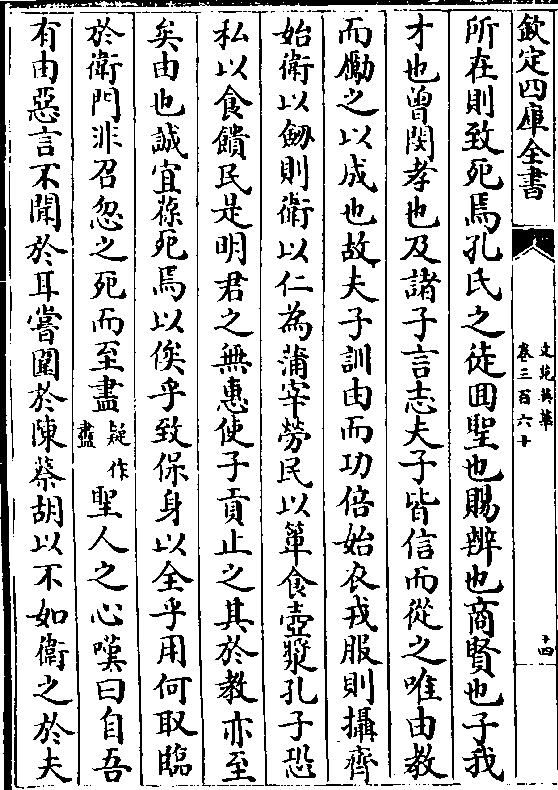 欽定四庫全書
文苑英華
卷三百六十
十四
所在則致死焉孔氏之徒回聖也賜辨也商賢也子我
才也曾閔孝也及諸子言志夫子皆信而從之唯由教
而勵之以成也故夫子訓由而功倍始衣戎服則攝齊
始衛以劒則衛以仁為蒲宰勞民以簞食壺漿孔子恐
私以食饋民是明君之無惠使子貢止之其於教亦至
矣由也誠宜葆死焉以俟乎致保身以全乎用何取臨
於衛門非召忽之死而至盡疑作盡聖人之心嘆曰自吾
有由惡言不聞於耳嘗圍於陳蔡胡以不如衛之於夫